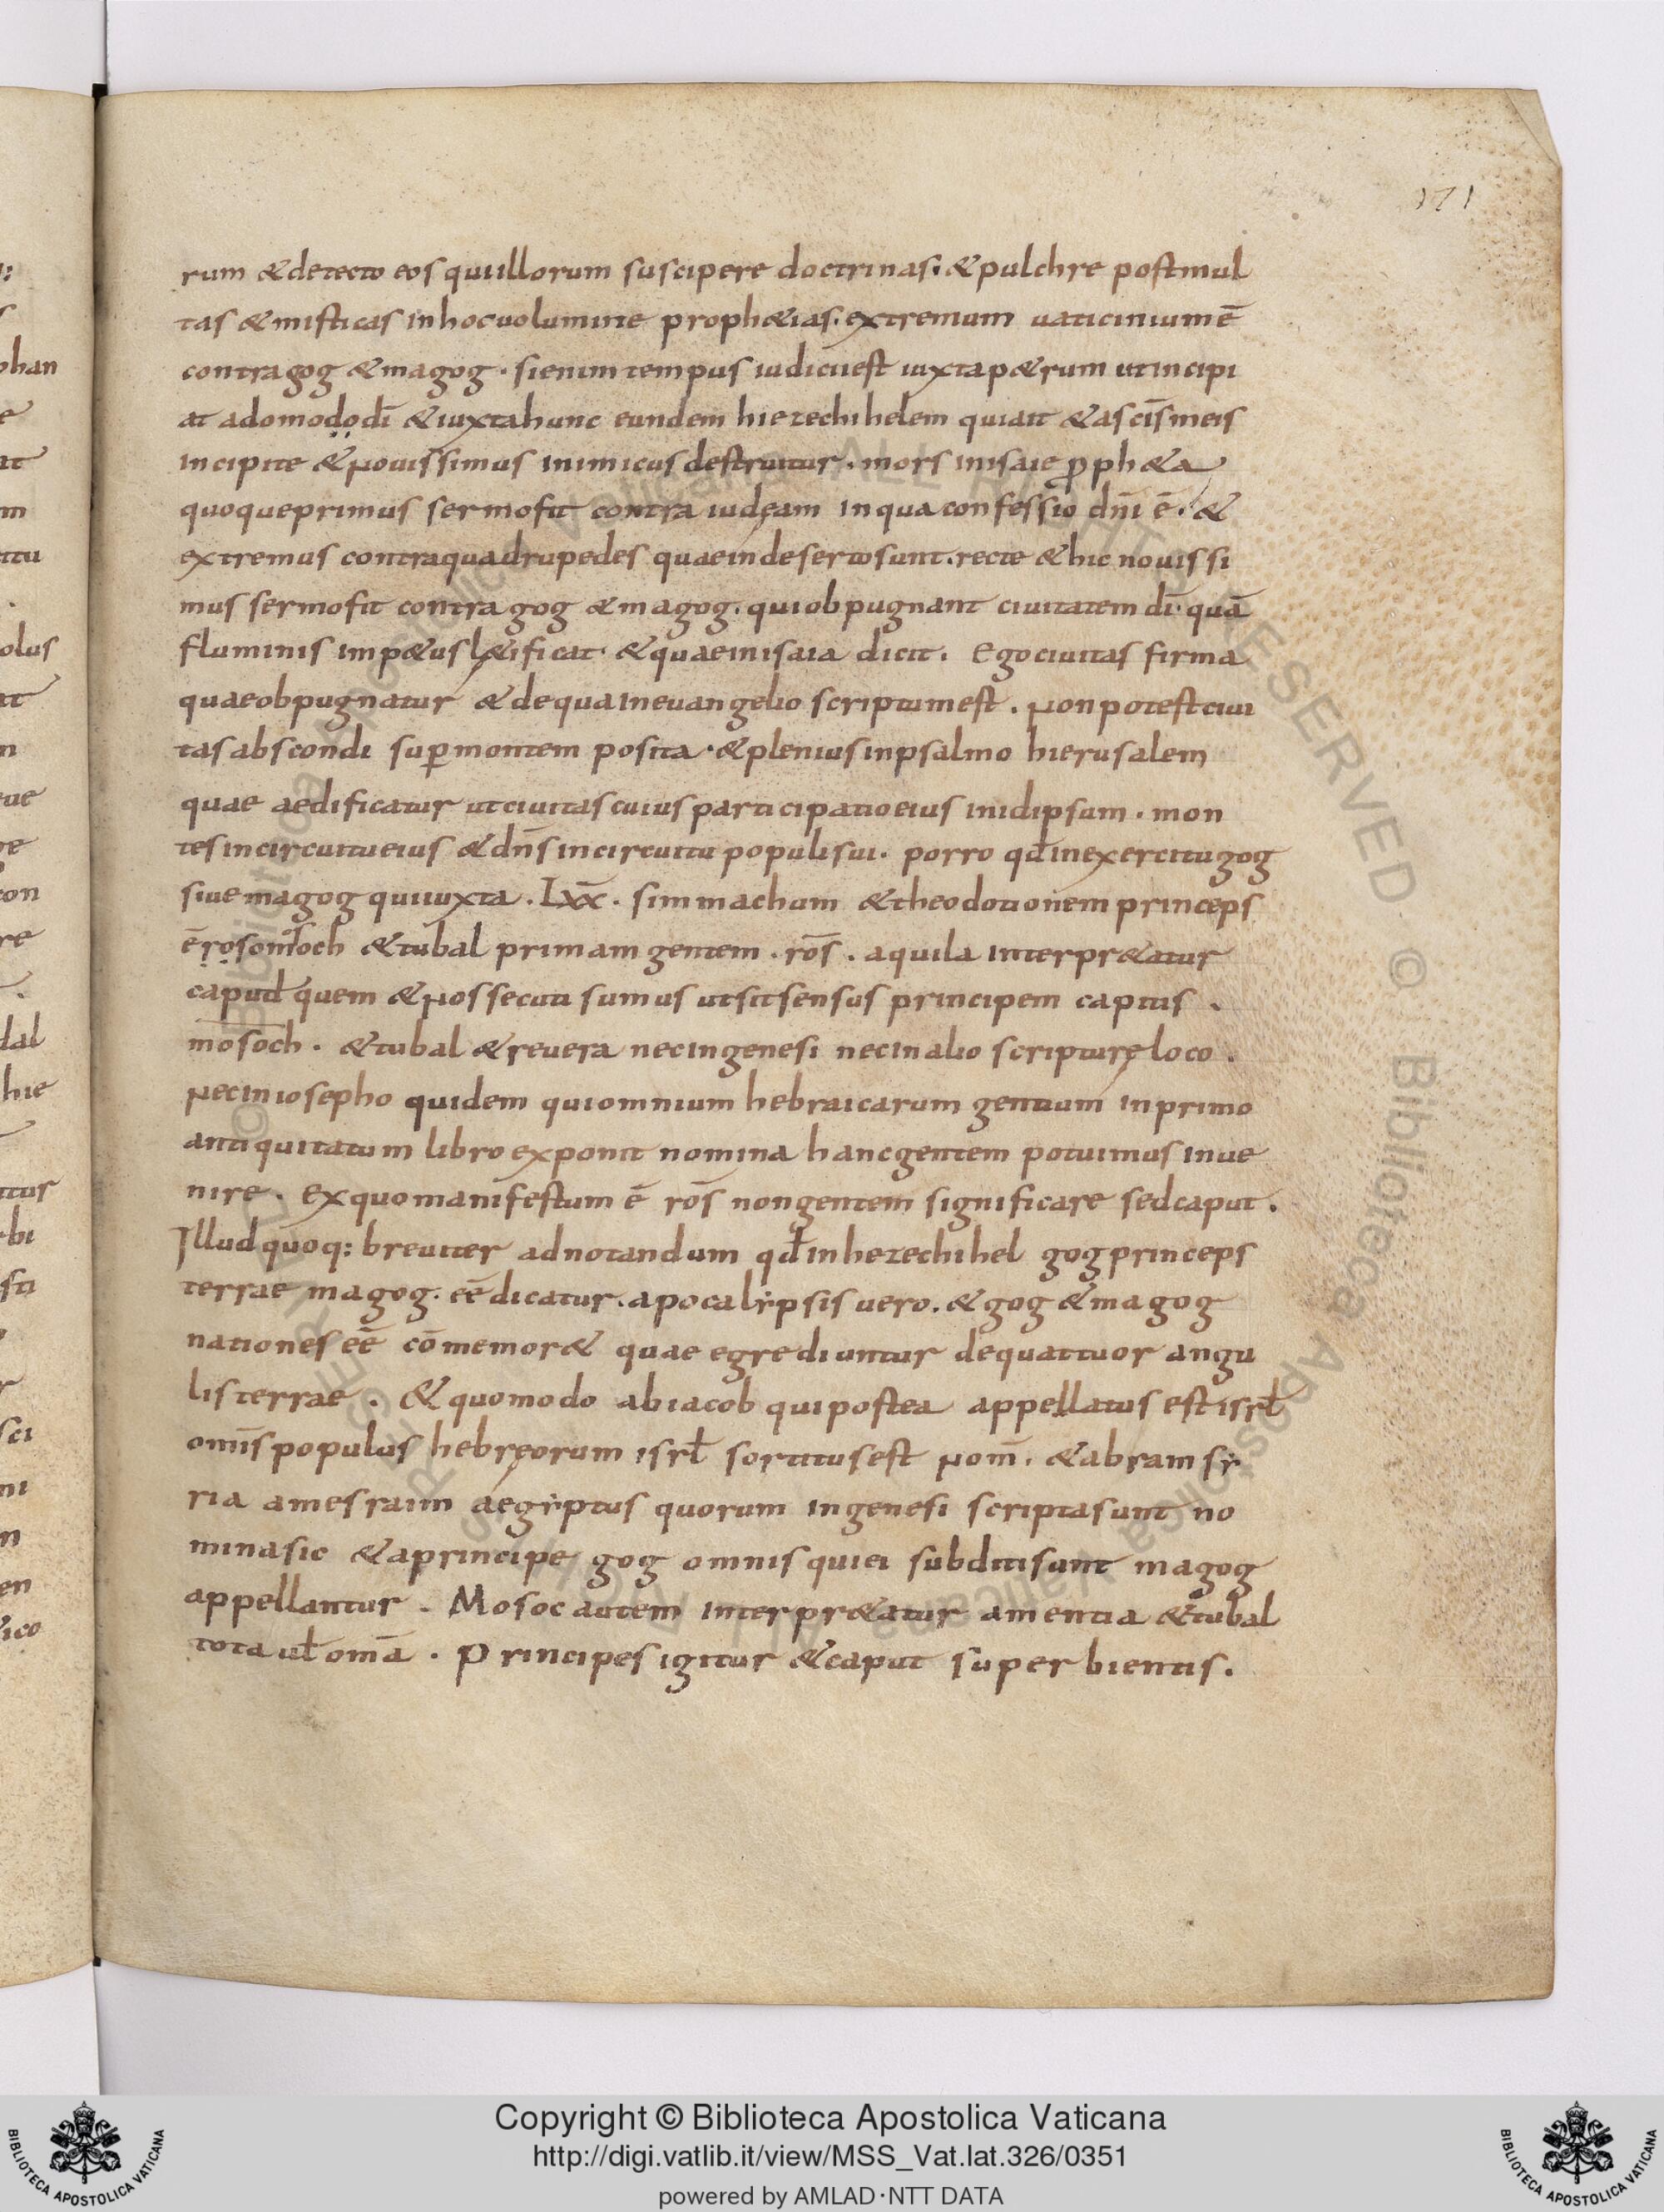 171
rum & detecto eos qui illorum suscipere doctrinas. & pulchre post mul
tas & misticas in hoc uolumine proph&ias. extremum uaticinium ē
contra gog & magog. si enim tempus iudicii est iuxta p&rum ut incipi
at a domo dodī & iuxta hunc eundem hiezechihelem qui ait & a scīs meis
incipite & nouissimus inimicus destruitur. mors in isaie ꝓph&a
quoque primus sermo fit contra iudęam in qua confessio dn̄i ē. &
extremus contra quadrupedes quae in deserto sunt. recte & hic nouissi
mus sermo fit contra gog & magog. qui obpugnant ciuitatem dī. quā
fluminis imp&us l&ificat. & quae in isaia dicit. Ego ciuitas firma
quae obpugnatur & de qua in euangelio scriptum est. Non potest ciui
tas abscondi sup̄ montem posita. & plenius in psalmo hierusalem
quae aedificatur ut ciuitas cuius participatio eius in idipsum. mon
tes in circuitu eius & dn̄s in circuitu populi sui. porro qđ in exercitu gog
siue magog qui iuxta. Lxx̄. simmachum & theodotionem princeps
ē rosomsoch & tubal primam gentem. rōs. aquila interpr&atur
capud quem & nos secuti sumus ut sit sensus principem capitis.
mosoch. & tubal & reuera nec in genesi nec in alio scripturę loco.
Nec in iosepho quidem qui omnium hebraicarum gentium in primo
antiquitatum libro exponit nomina hanc gentem potuimus inue
nire. Ex quo manifestum ē rōs non gentem significare sed caput.
Illud quoq: breuiter adnotandum qđ in hezechihel gog princeps
terrae magog. eē dicatur. apocalẏpsis uero. & gog & magog
nationes eē cōmemor& quae egrediuntur de quattuor angu
lis terrae. & quomodo ab iacob qui postea appellatus est isrł
omīs populus hebręorum isrł sortitus est nom̄. & ab ram sẏ
ria a mesraim aegẏptus quorum in genesi scripta sunt no
mina sic & a principe gog omnis qui ei subditi sunt magog
appellantur. Mosoc autem interpr&atur amentia & tubal
tota uł omā. Principes igitur & caput superbientis.
Copyright © Biblioteca Apostolica Vaticana
http://digi.vatlib.it/view/MSS_Vat.lat.326/0351
powered by AMLAD·NTT DATA